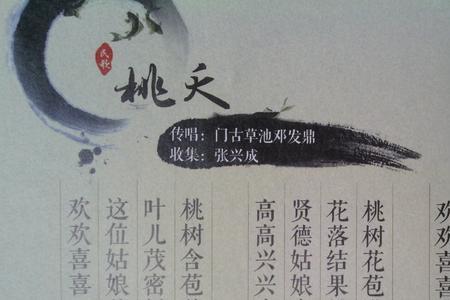 民歌
桃夭
传唱：门古草池邓发鼎
收集：张兴成
欢欢喜喜
桃树花苞
花落结果
贤德姑娘
高高兴兴
桃树含苞
叶儿茂密
这位姑娘
欢欢喜喜